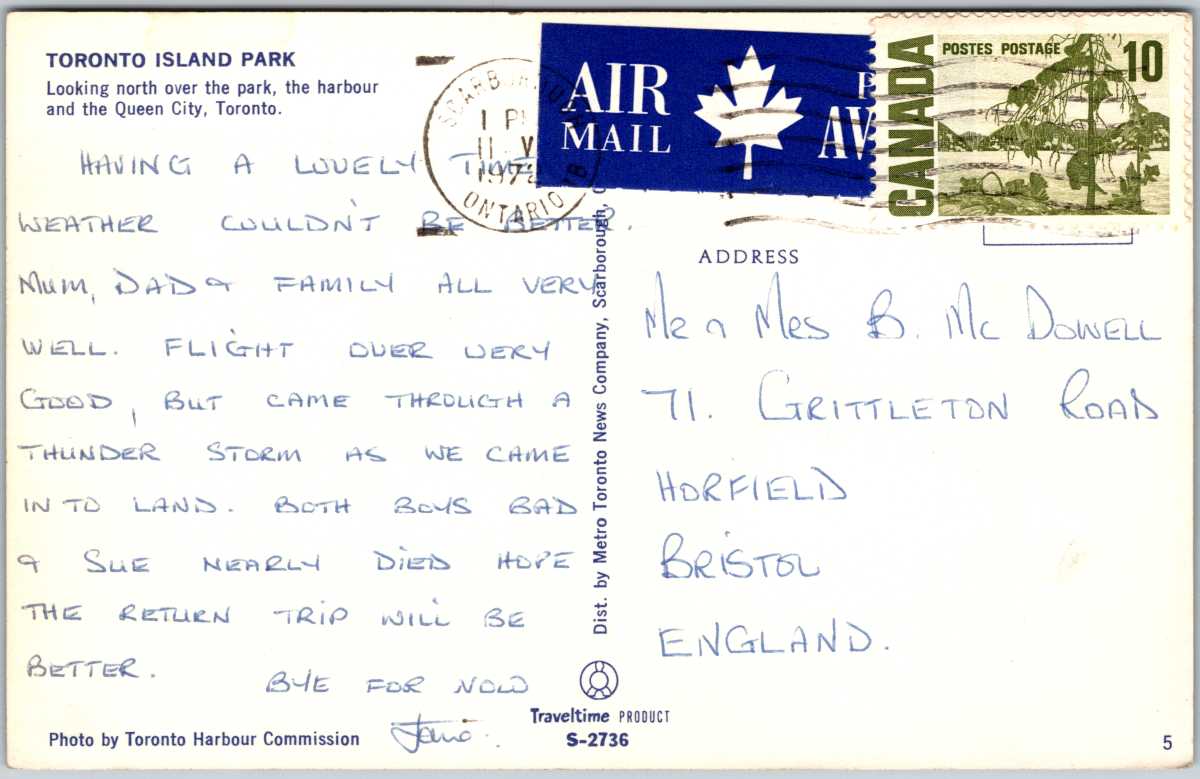 TORONTO ISLAND PARK
Looking north over the park, the harbour
and the Queen City, Toronto.
HAVING A LOVELY TIME
WEATHER COULDN'T BE BETTER.
MUM, DAD & FAMILY ALL VERY
WELL. FLIGHT OVER VERY
GOOD, BUT CAME THROUGH A
THUNDER STORM AS WE CAME
IN TO LAND. BOTH BOYS BAD
& SUE NEARLY DIED HOPE
THE RETURN TRIP WILL BE
BETTER.
BYE FOR NOW
Photo by Toronto Harbour Commission
1 PM
11 V
ONTARIO
AIR
MAIL
AV
CANADA
POSTES POSTAGE
10
Dist. by Metro Toronto News Company, Scarborough,
Traveltime PRODUCT
S-2736
ADDRESS
MR & MRS B. MC DOWELL
71. GRITTLETON ROAD
HORFIELD
BRISTOL
ENGLAND.
5